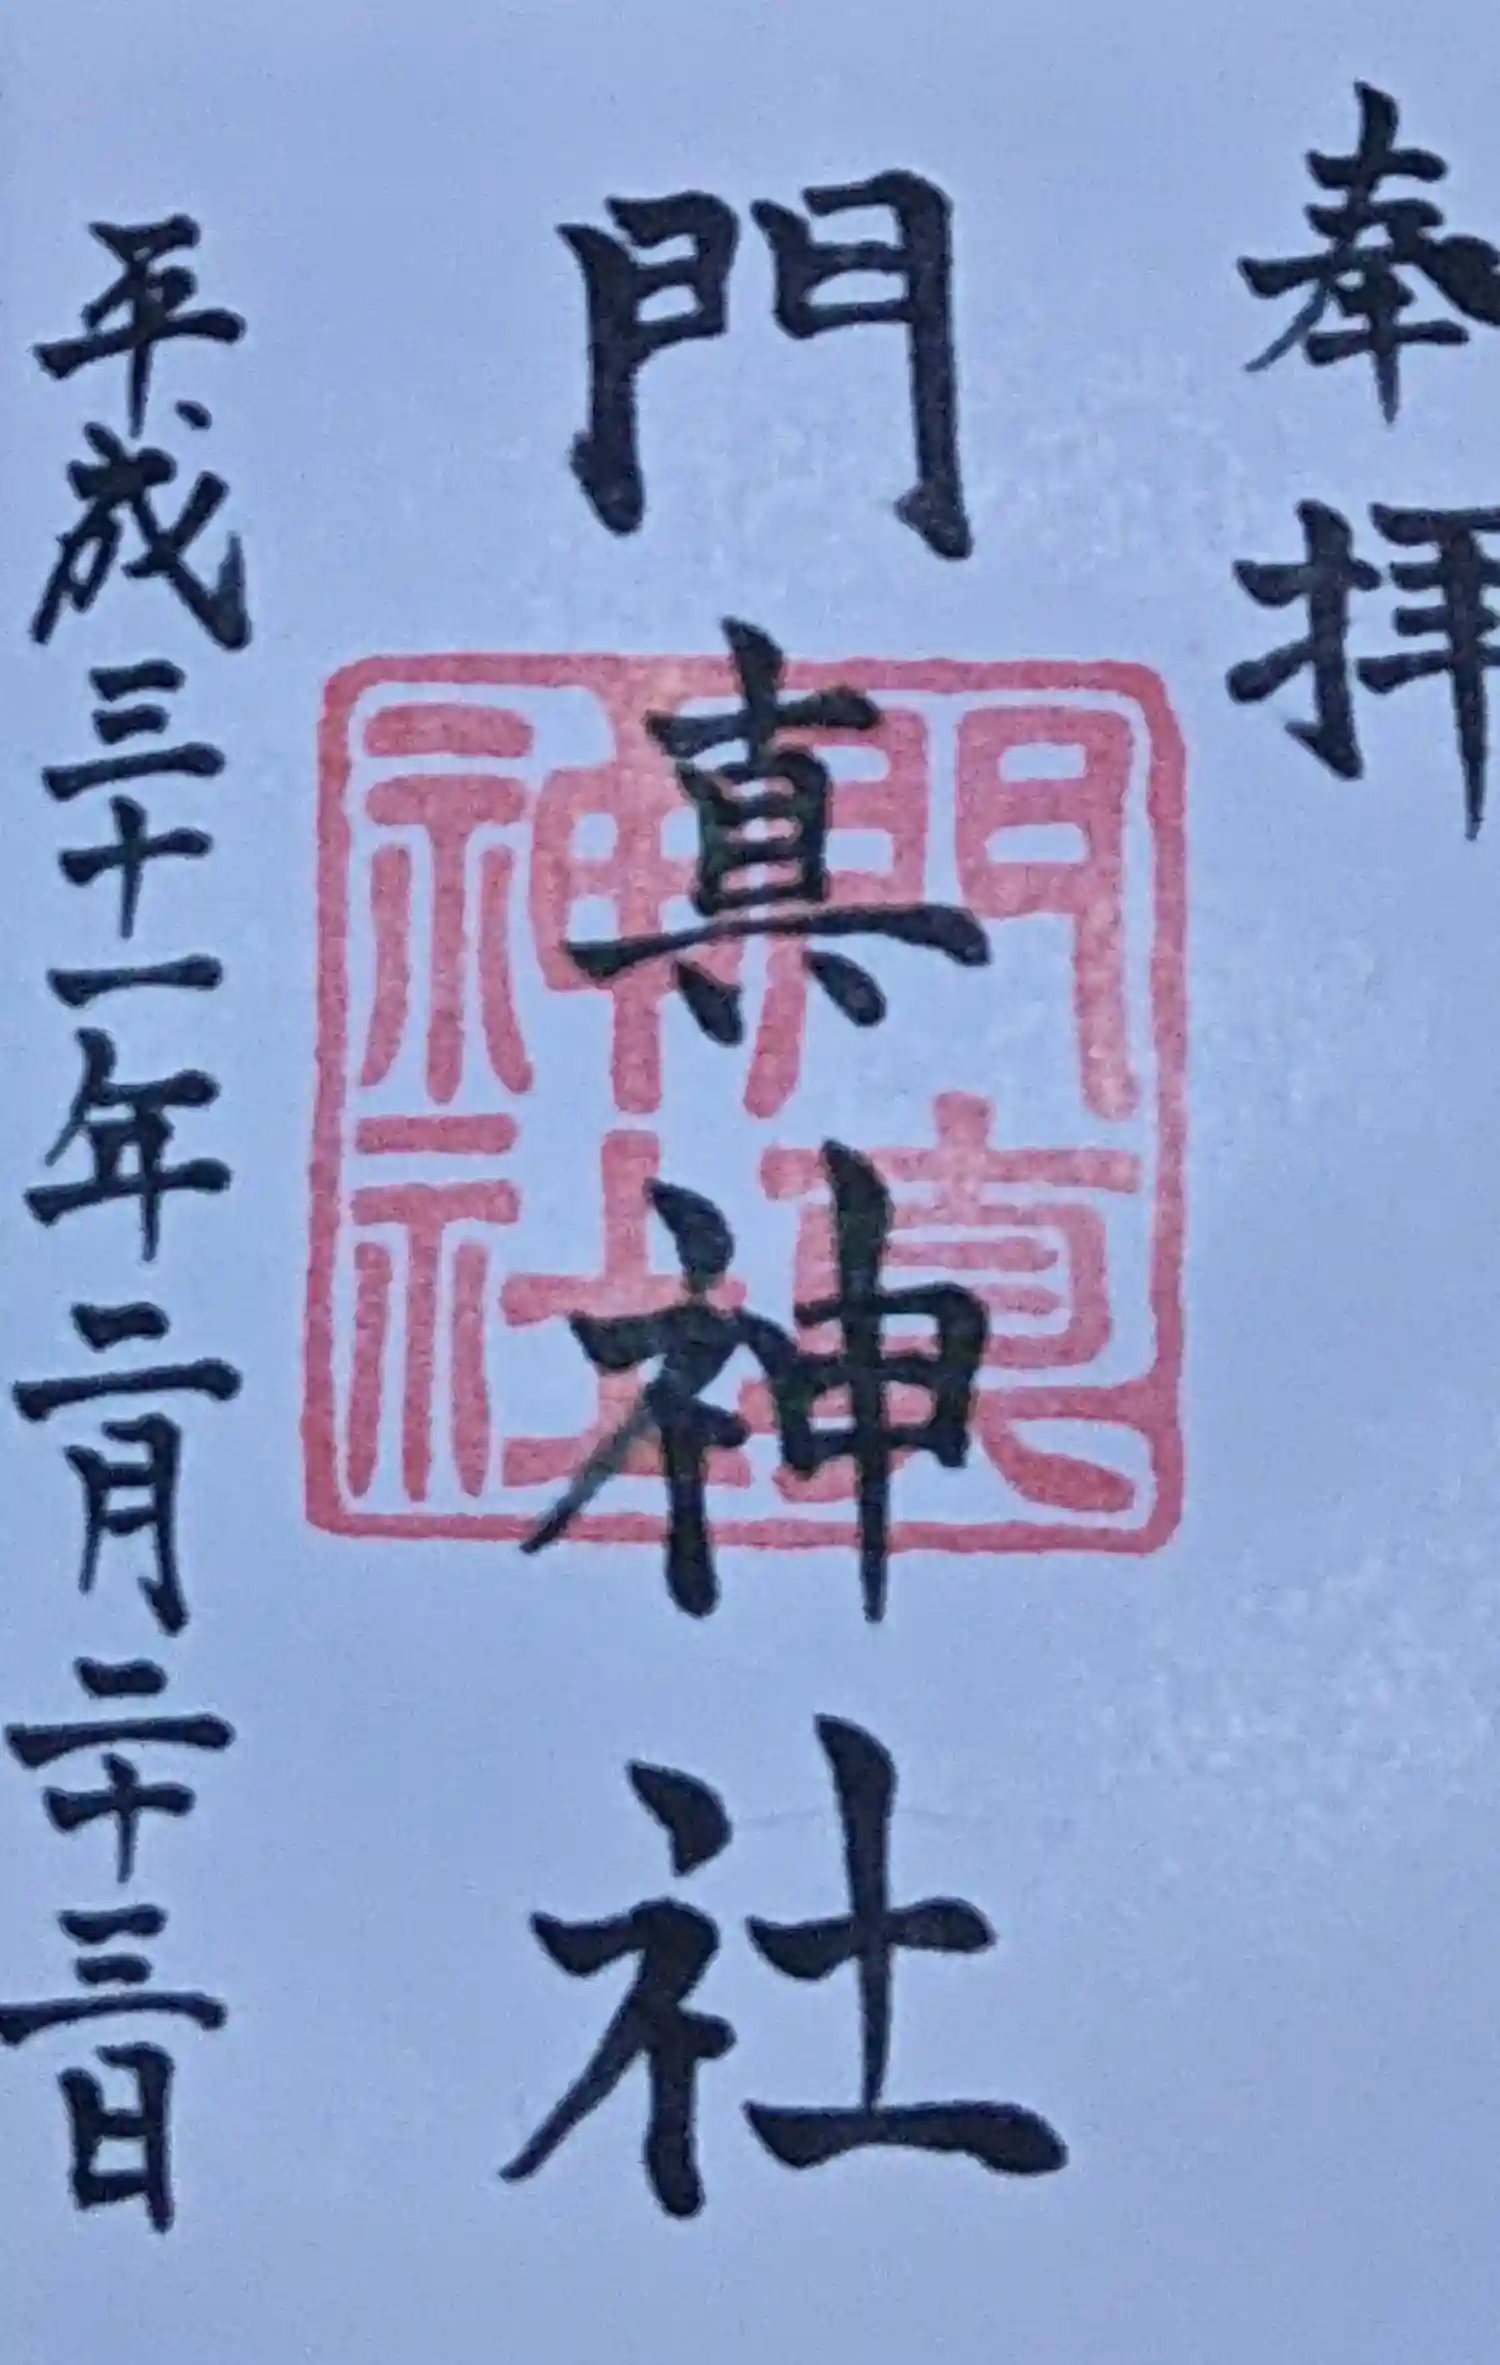 奉拝
門真神社
門真
神社
平成三十一年二月二十三日